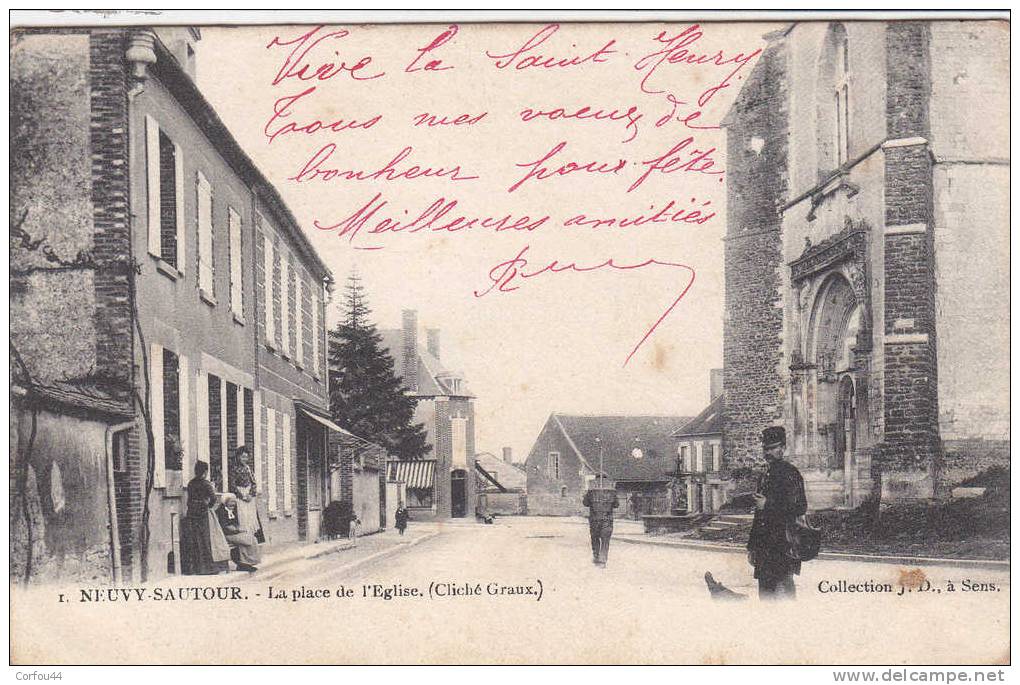 Vive la Saint Henry
Tous mes voeux de
bonheur pour fête.
Meilleures amitiés
1. NEUVY-SAUTOUR. - La place de l'Eglise. (Cliché Graux.)
Collection J. D., à Sens.
Corfou44
www.delcampe.net